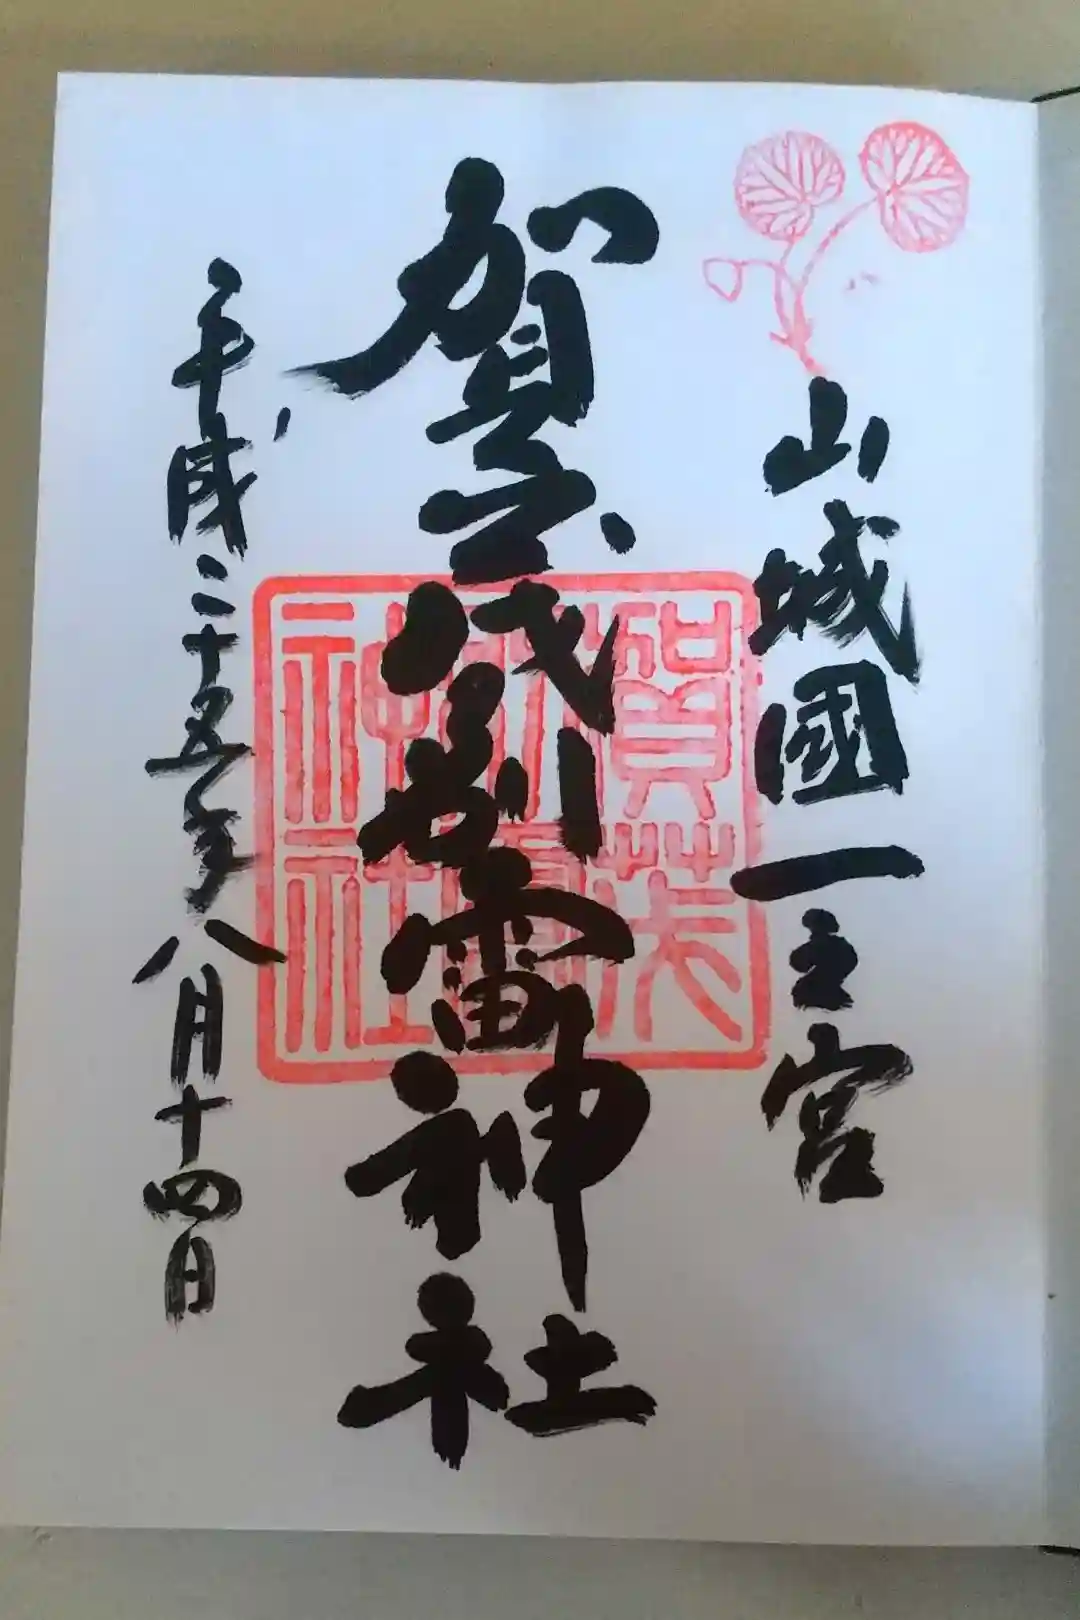 山城國一之宮
賀茂別雷神社
平成二十五年八月十四日
賀茂
別雷
神社